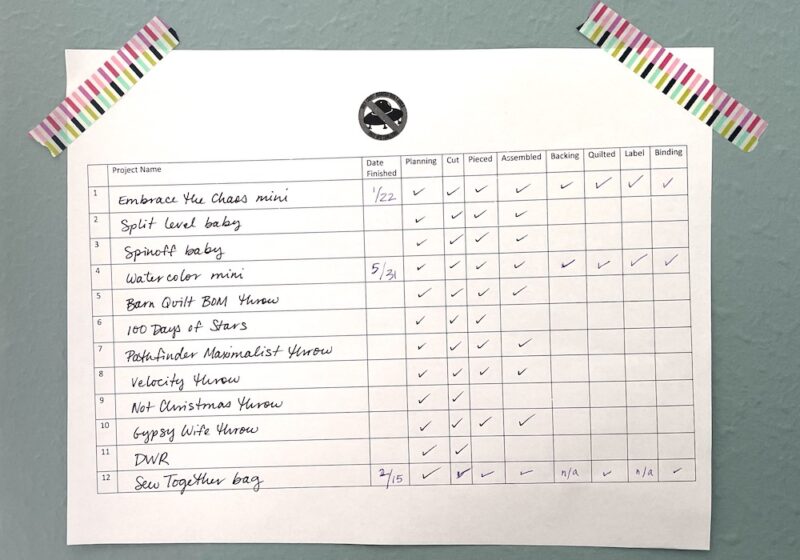 Project Name Date Finished Planning Cut Pieced Assembled Backing Quilted Label Binding
1 Embrace the Chaos mini 1/22 ✓ ✓ ✓ ✓ ✓ ✓ ✓ ✓
2 Split level baby ✓ ✓ ✓ ✓
3 Spinoff baby ✓ ✓ ✓ ✓
4 Watercolor mini 5/31 ✓ ✓ ✓ ✓ ✓ ✓ ✓ ✓
5 Barn Quilt BOM throw ✓ ✓ ✓ ✓
6 100 Days of Stars ✓ ✓ ✓
7 Pathfinder Maximalist throw ✓ ✓ ✓ ✓
8 Velocity throw ✓ ✓ ✓ ✓
9 Not Christmas throw ✓ ✓
10 Gypsy Wife throw ✓ ✓ ✓ ✓
11 DWR ✓ ✓
12 Sew Together bag 2/15 ✓ ✓ ✓ ✓ n/a ✓ n/a ✓